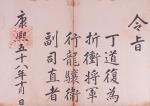 令旨
丁道復為
折衝將軍
行龍驤衛
副司直者
康熙五十八年十月 日